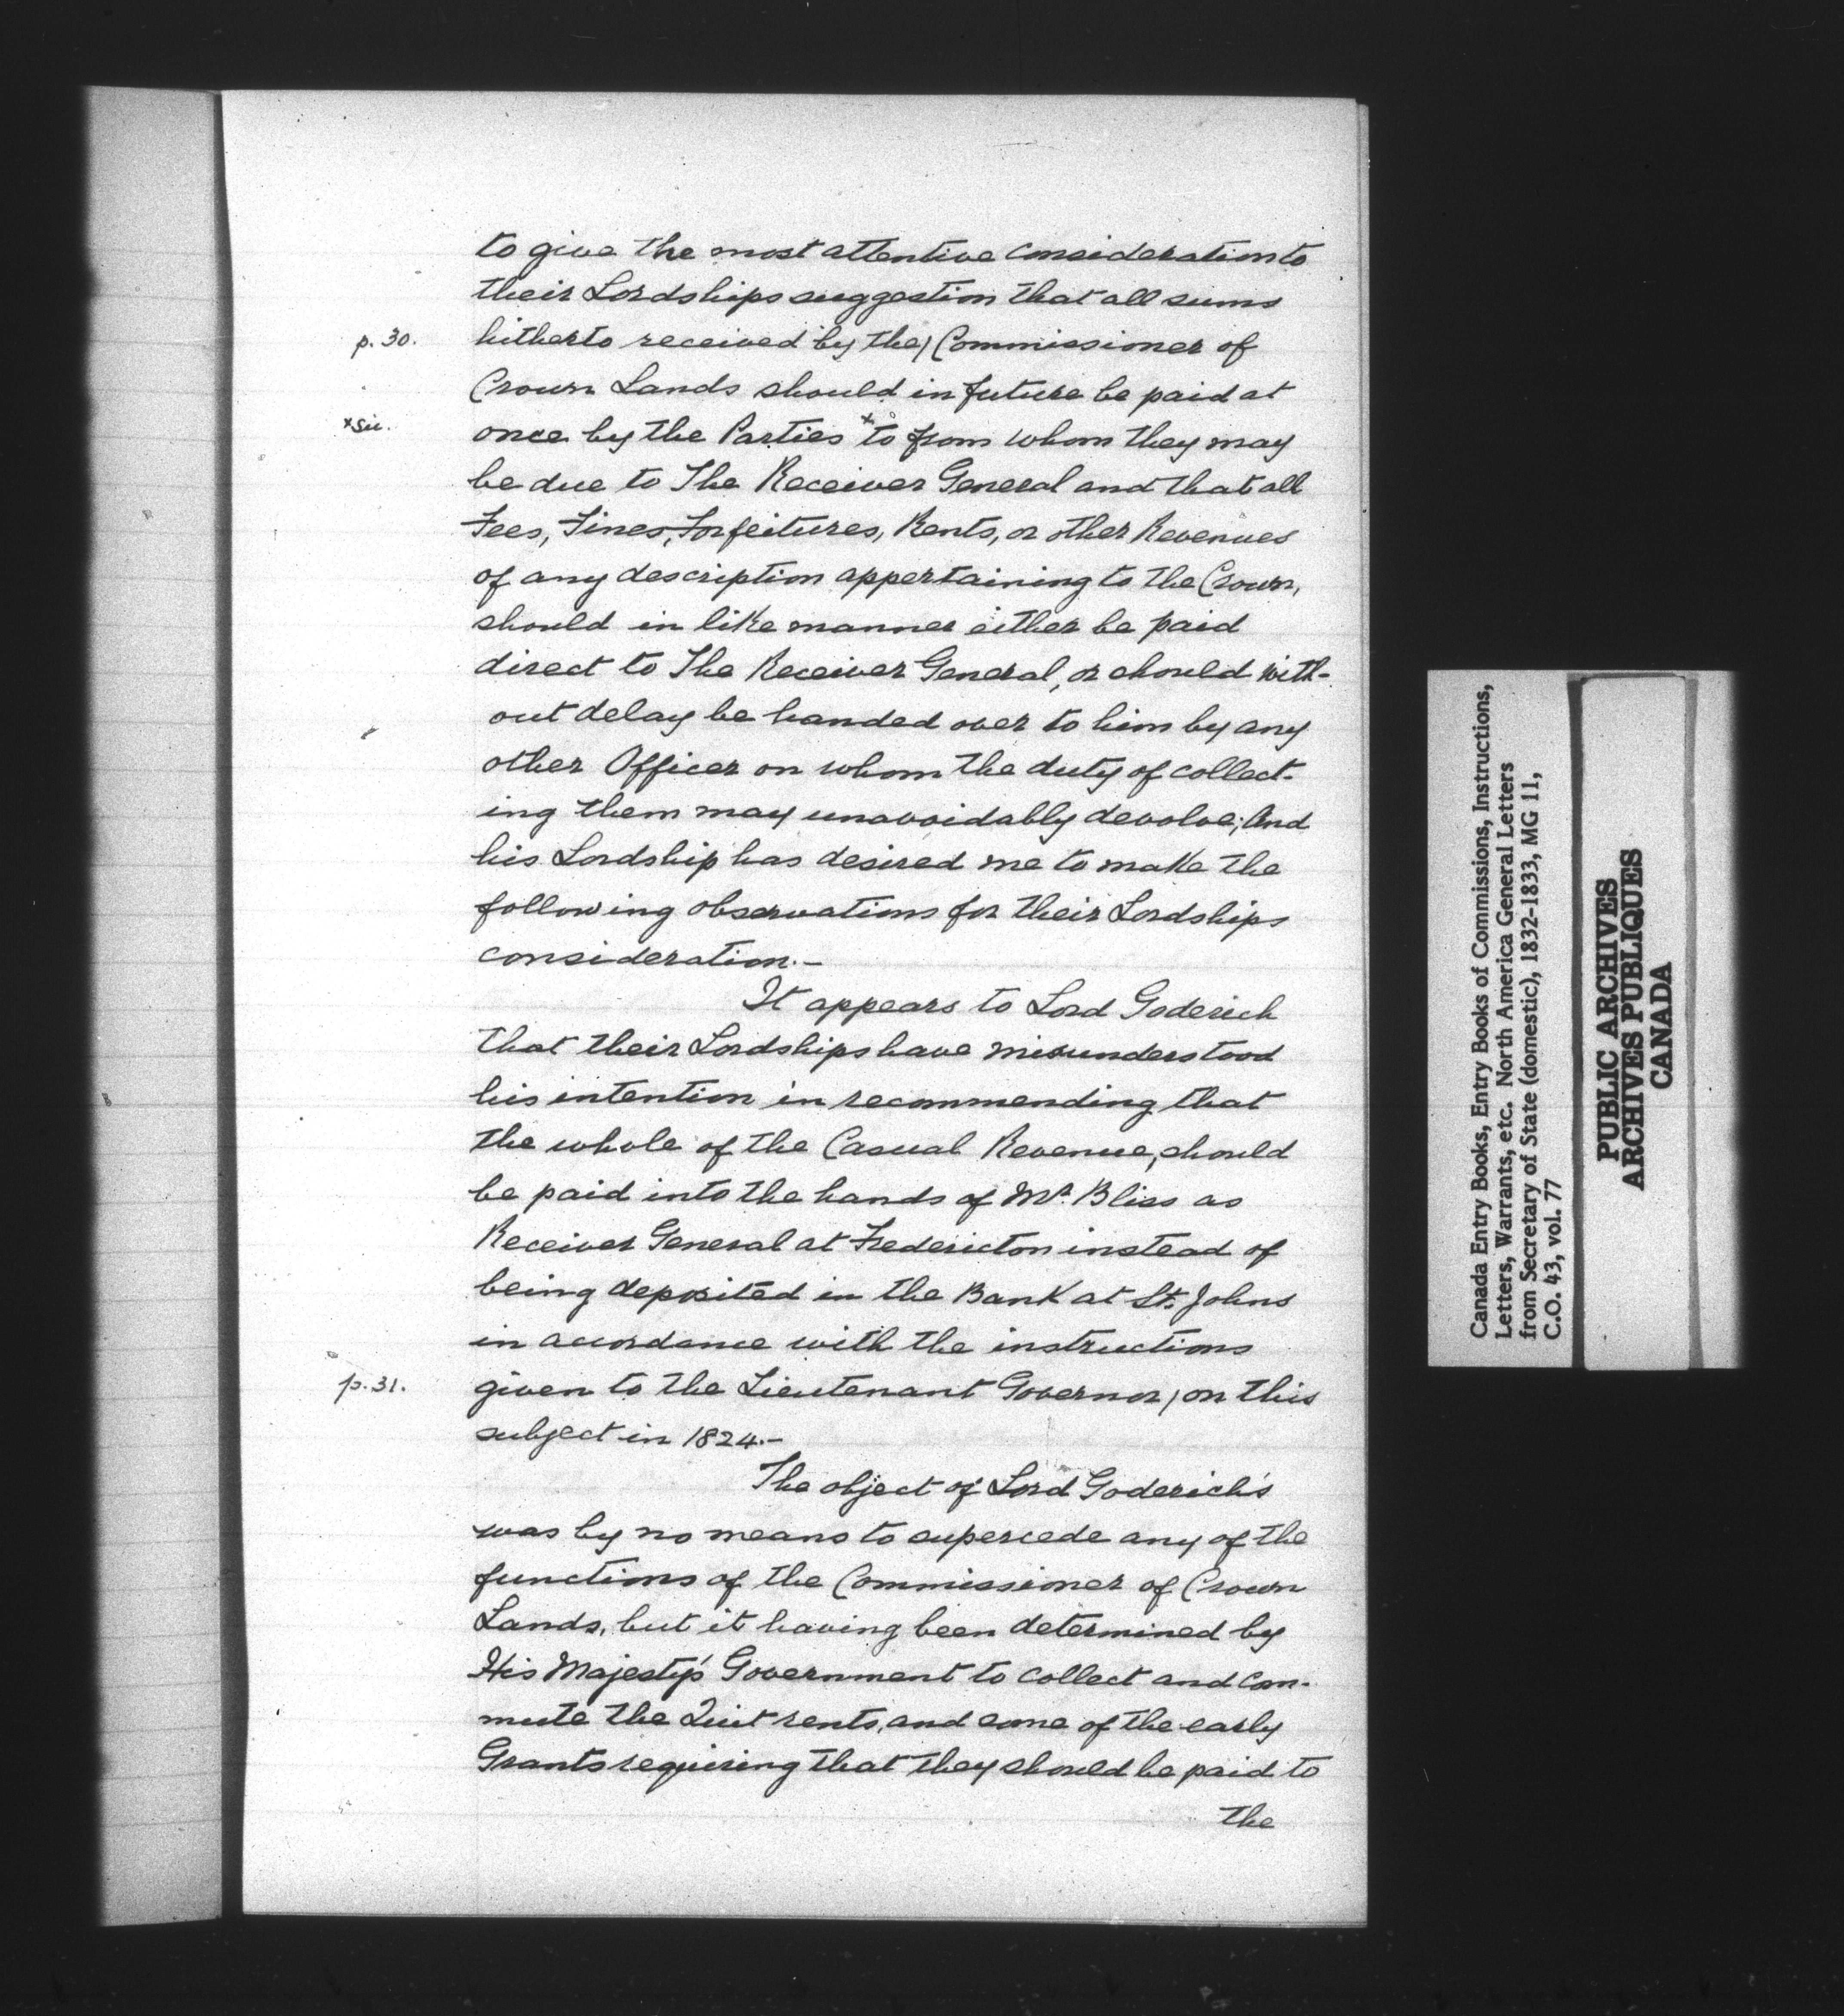 to give the most attentive consideration to
their Lordships suggestion that all sums
p. 30.
hitherto received by the / Commissioner of
Crown Lands should in future be paid at
x sic.
once by the Parties x to from whom they may
be due to The Receiver General and that all
Fees, Fines, Forfeitures, Rents, or other Revenues
of any description appertaining to the Crown,
should in like manner either be paid
direct to The Receiver General, or should with-
out delay be handed over to him by any
other Officer on whom the duty of collect-
ing them may unavoidably devolve; And
his Lordship has desired me to make the
following observations for their Lordships
consideration.-
It appears to Lord Goderich
that their Lordships have misunderstood
his intention in recommending that
the whole of the Casual Revenue, should
be paid into the hands of Mr. Bliss as
Receiver General at Fredericton instead of
being deposited in the Bank at St. Johns
in accordance with the instructions
p. 31.
given to the Lieutenant Governor / on this
subject in 1824.-
The object of Lord Goderich's
was by no means to supercede any of the
functions of the Commissioner of Crown
Lands, but it having been determined by
His Majesty's Government to collect and com-
mute the Quit rents, and some of the early
Grants requiring that they should be paid to
the
Canada Entry Books, Entry Books of Commissions, Instructions,
Letters, Warrants, etc. North America General Letters
from Secretary of State (domestic), 1832-1833, MG 11,
C.O. 43, vol. 77
PUBLIC ARCHIVES
ARCHIVES PUBLIQUES
CANADA